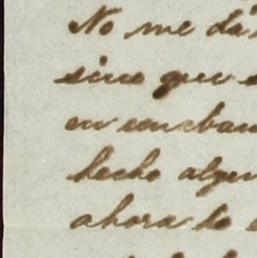 No me da
sino que
en cambau
hecho algun
ahora lo